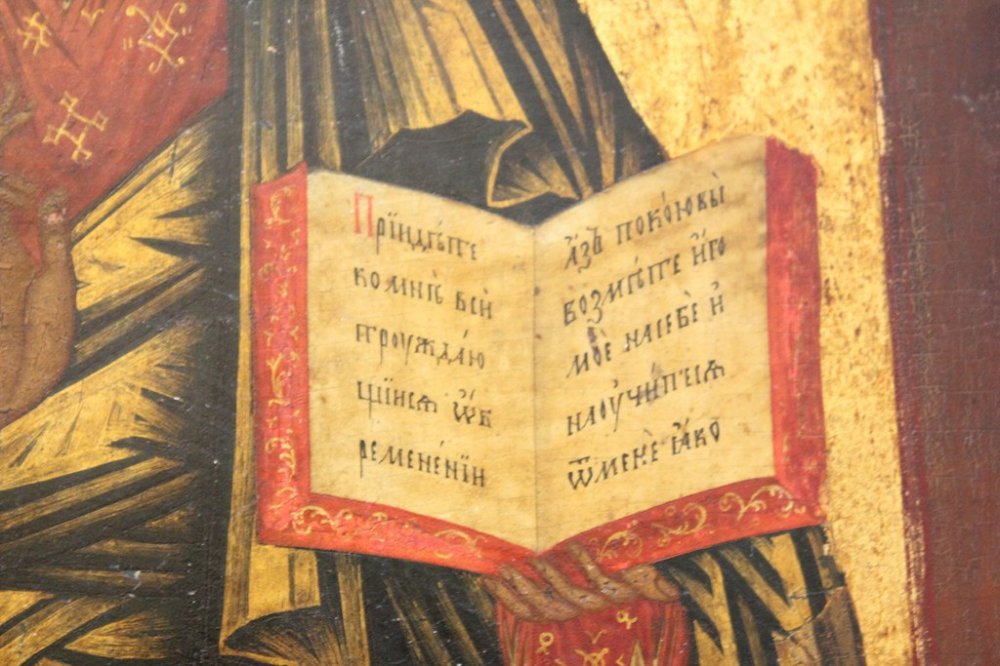 Прїидѣте
ко мнѣ вси
троуждаю
щїися ѡб
ременéнїи
а́зъ покою вы
возмѣте и́го
моѐ на себѐ и҆
наоучитеся
ѿ менѐ ꙗко